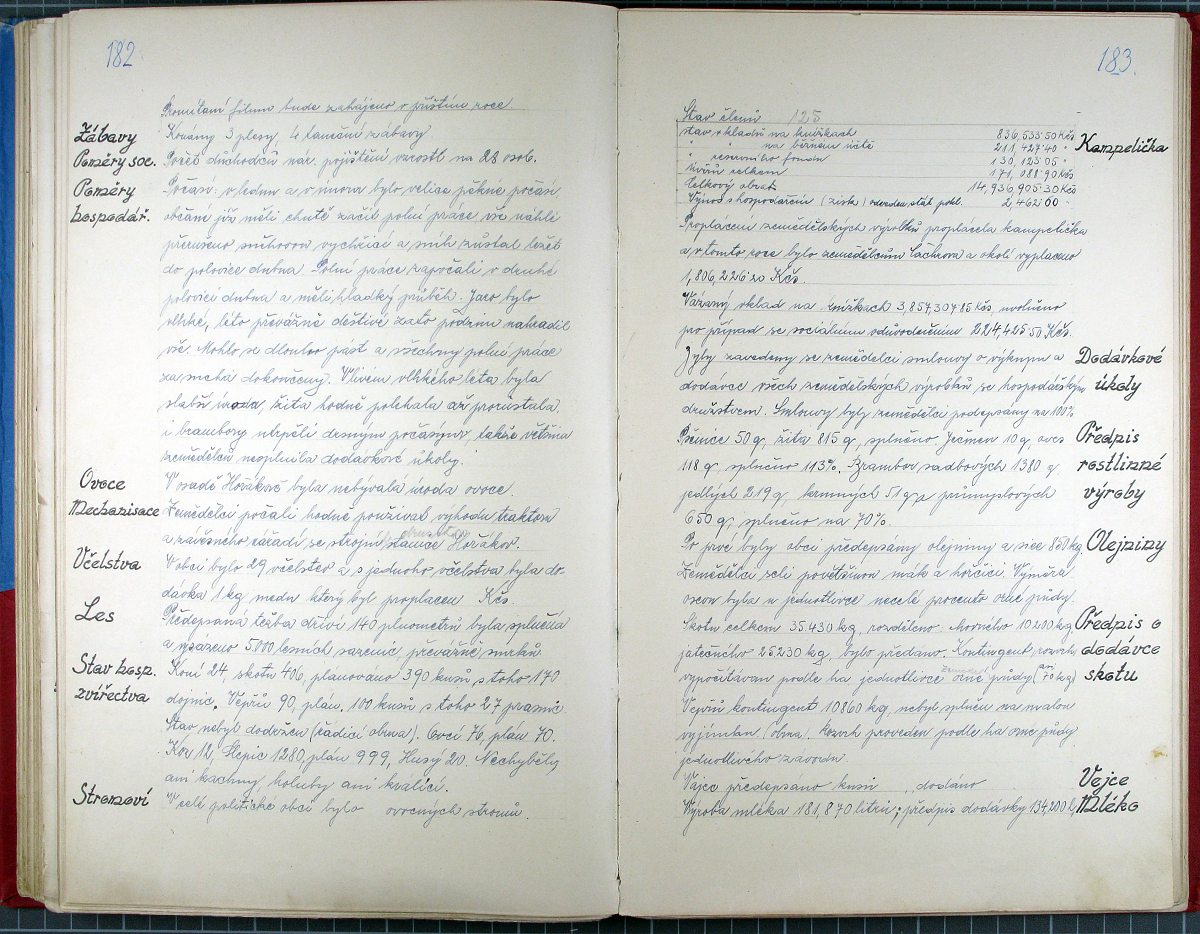 182.
Promítání filmu bude zahájeno v příštím roce.
Zábavy
Konány 3 plesy, 4 taneční zábavy.
Poměry soc.
Počet důchodců nar. pojištění vzrostl na 28 osob.
Poměry
Počasí: v lednu a v únoru bylo velice pěkné počasí
hospodář.
občani již měli chutě začít polní práce, vše náhle
přerušeno sněhovou vychřicí a sníh zůstal ležet
do polovice dubna. Polní práce započali v druhé
polovici dubna a měli hladký průběh. Jaro bylo
vlhké, léto převážně deštivé zato podzim nahradil
vše. Mohlo se dlouho pást a všechny polní práce
za sucha dokončeny. Vlivem vlhkého léta byla
slabší úroda, žita hodně polehala až prorůstala
i brambory utrpěli drsným počasým, takže většina
zemědělců nesplnila dodávkové úkoly.
Ovoce
V osadě Hořákově byla nebývalá úroda ovoce.
Mechanisace
Zemědělci počali hodně používat vyhodu traktoru
a závěsného nářadí se strojní stanice Hořákov.
Včelstva
V obci bylo 29 včelstev a s jednoho včelstva byla do-
dávka 1 kg medu který byl proplacen Kčs.
Les
Předepsaná těžba dříví 140 plnometrů byla splněna
a vysázeno 5.000 lesních sazenic převážně smrků.
Stav hosp.
Koní 24, skotu 406, plánováno 390 kusů s toho 170
zvířectva
dojnic. Vepřů 90, plán. 100 kusů s toho 27 prasnic
Stav nebyl dodržen (řádící obrna). Ovcí 76, plán 70.
Koz 12, Slepic 1280, plán 999, Husý 20. Nechyběly
ani kachny, holuby ani králíci.
Stromoví
V celé politické obci bylo ovocných stromů.
183.
Stav členů 125
stav vkladů na knížkách 836,533·50 Kčs
" " na běžném účtě 211,427·40 "
Kampelička
" reservního fondu 130,125·05 "
úvěrů celkem 171,088·90 Kčs
Celkový obrat 14,936,905·30 Kčs
Výnos hospodaření (zisk) odveden stát. pokl. 2,462·00 -
Proplácení zemědělských výrobků proplácela kampelička
a v tomto roce bylo zemědělcům Čachrova a okolí vyplaceno
1,806,226·20 Kčs.
Vázaný vklad na knížkách 3,857,307·85 Kčs uvolněno
pro případ se sociálním odůvodněním 224,425·50 Kčs.
Byly zavedeny se zemědělci smlouvy o výkupu a
Dodávkové
dodávce všech zemědělských výrobků, se hospodářským
úkoly
družstvem. Smlouvy byly zemědělci podepsány na 100%
Předpis
Pšenice 50 q, žita 815 q, splněno, Ječmen 10 q, oves
rostlinné
118 q, splněno 113%. Brambor sadbových 1380 q
výroby
jedlých 219 q, krmných 51 q, průmyslových
650 q, splněno na 70%.
Olejniny
Po prvé byly obci předepsány olejniny a sice 850 kg
Zemědělci seli povětšinou mák a hořčici. Výměra
osevu byla u jednotlivce necelé procento orné půdy.
Předpis o
Skotu celkem 35.430 kg, rozděleno: chovného 10200 kg
dodávce
jatečného 25.230 kg, bylo předáno. Kontingent, rozvrh
skotu
vypočítáván podle ha jednotlivce orné půdy (70 kg)
Vepřů kontingent 10860 kg, nebyl splněn na malou
vyjímku (obrna). Rozvrh proveden podle ha orné půdy
jednotlivého závodu.
Vejce
Vajec předepsáno kusů , dodáno
Mléko
Výroba mléka 181,870 litrů; předpis dodávky 134,200 l,